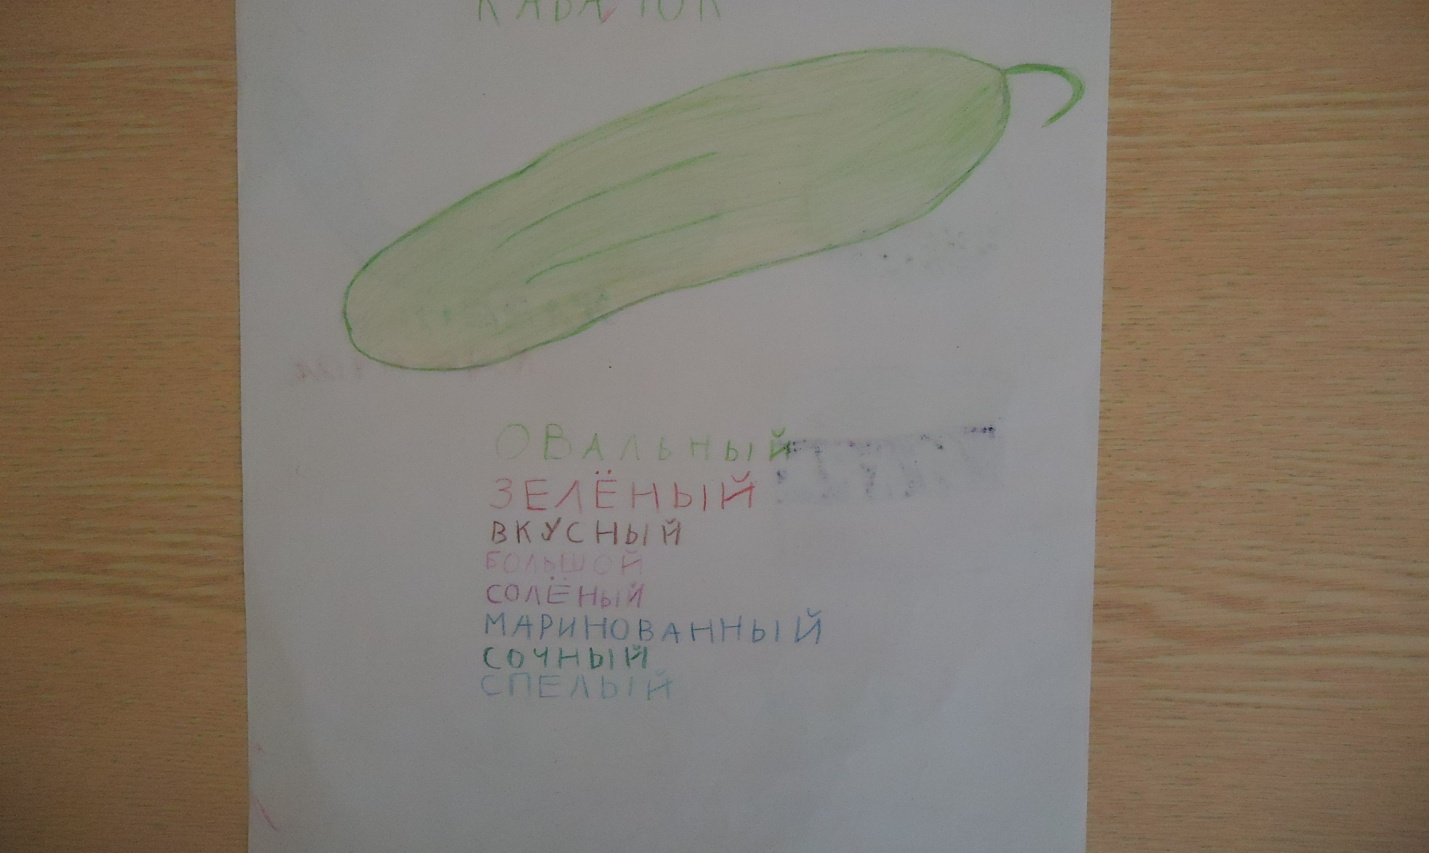 КАБАЧОК
ОВАЛЬНЫЙ
ЗЕЛЁНЫЙ
ВКУСНЫЙ
БОЛЬШОЙ
СОЛЁНЫЙ
МАРИНОВАННЫЙ
СОЧНЫЙ
СПЕЛЫЙ